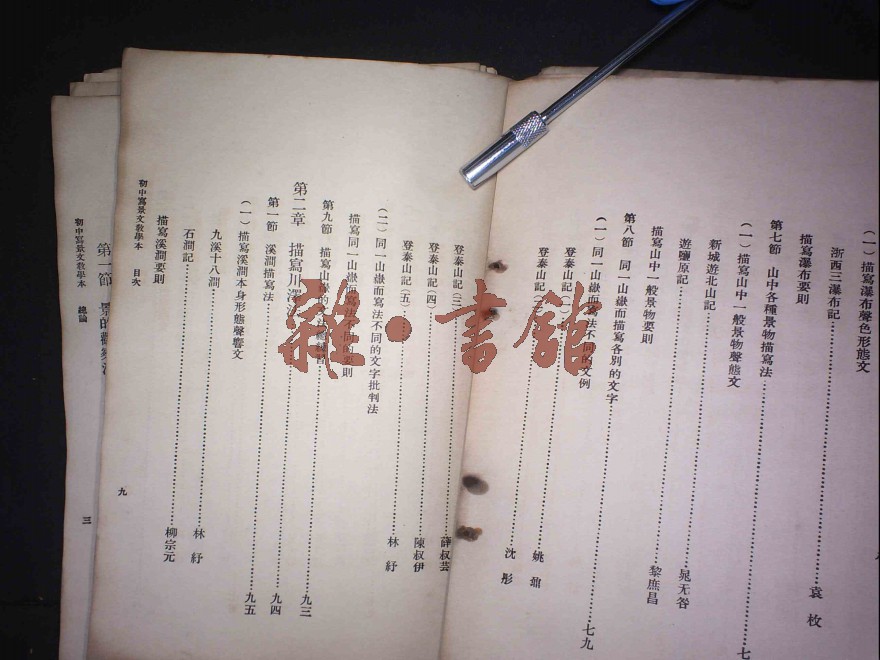 （一）描寫瀑布聲色形態文
浙西三瀑布記……袁枚
描寫瀑布要則
第七節　山中各種景物描寫法……七
（一）描寫山中一般景物聲態文
新城遊北山記……晁无咎
遊鹽原記……黎庶昌
描寫山中一般景物要則
第八節　同一山嶽而描寫各別的文字……七九
（一）同一山嶽而寫法不同的文例
登泰山記（一）……姚鼐
登泰山記……沈彤
登泰山記（三）……薛叔芸
登泰山記（四）……陳叔伊
登泰山記（五）……林紓
（二）同一山嶽而寫法不同的文字批判法
描寫同一山嶽而寫法不同的要則
第九節　描寫山嶽的
第二章　描寫川澤……九三
第一節　溪澗描寫法……九四
（一）描寫溪澗本身形態聲響文……九五
九溪十八澗……林紓
石澗記……柳宗元
描寫溪澗要則
初中寫景文教學本　目次
九
第一節　景的觀察法
初中寫景文教學本　總論
三
雜·書館